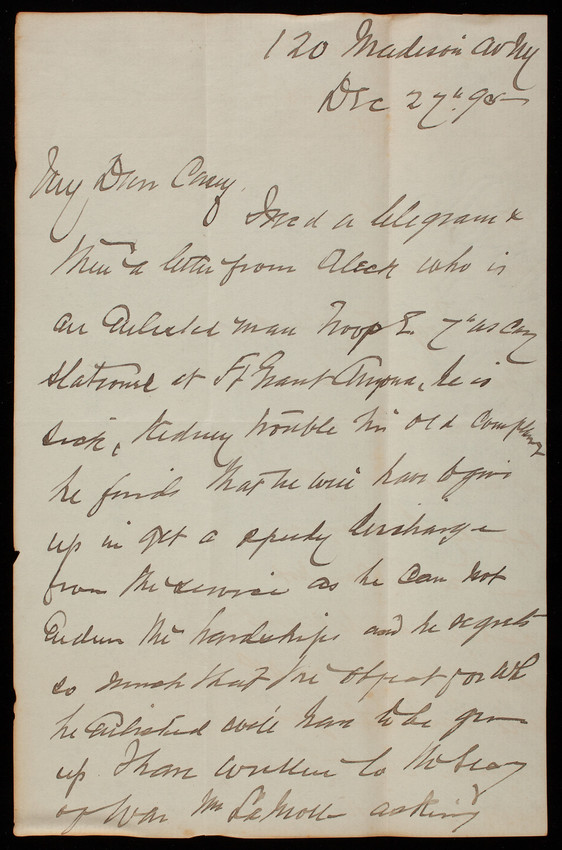 120 Madison Av NY
Dec 27th 95
My Dear Casey,
I recd a telegram &
then a letter from Aleck who is
an Enlisted man Troop E. 7th US Cav
Stationed at Ft Grant Arizona, he is
sick, Kidney trouble his old complaint
he finds that he will have to give
up in get a speedy discharge
from the service as he can not
Endure the hardships and he regrets
so much that the object for wh
he Enlisted will have to be given
up I have written to the Secy
of War Mr Lamont asking